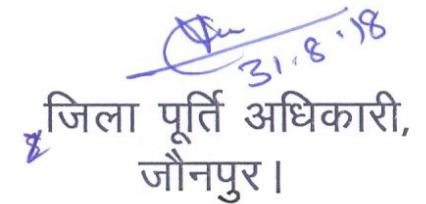 31.8.18
जिला पूर्ति अधिकारी,
जौनपुर।